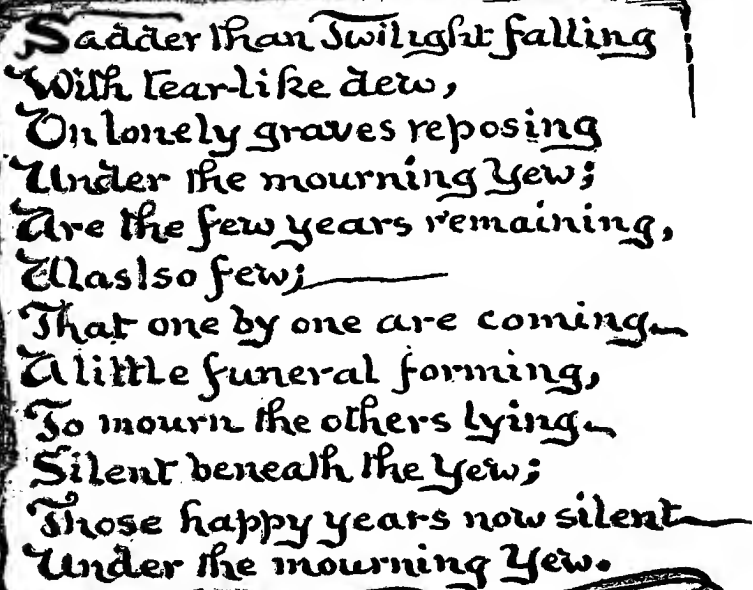 Sadder than Twilight falling
With tear-like dew,
On lonely graves reposing
Under the mourning Yew;
Are the few years remaining,
Alas! so few;
That one by one are coming
A little funeral forming,
To mourn the others lying
Silent beneath the Yew;
Those happy years now silent
Under the mourning Yew.